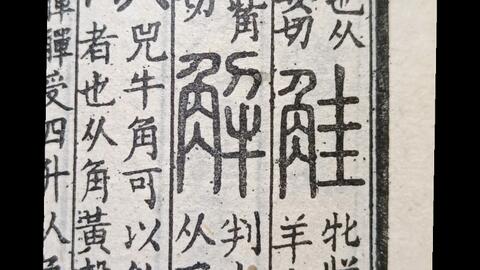 也从
切
觟
牝
羊
切
解
判
从
兕牛角可以
者也从角黃
觶受四升从